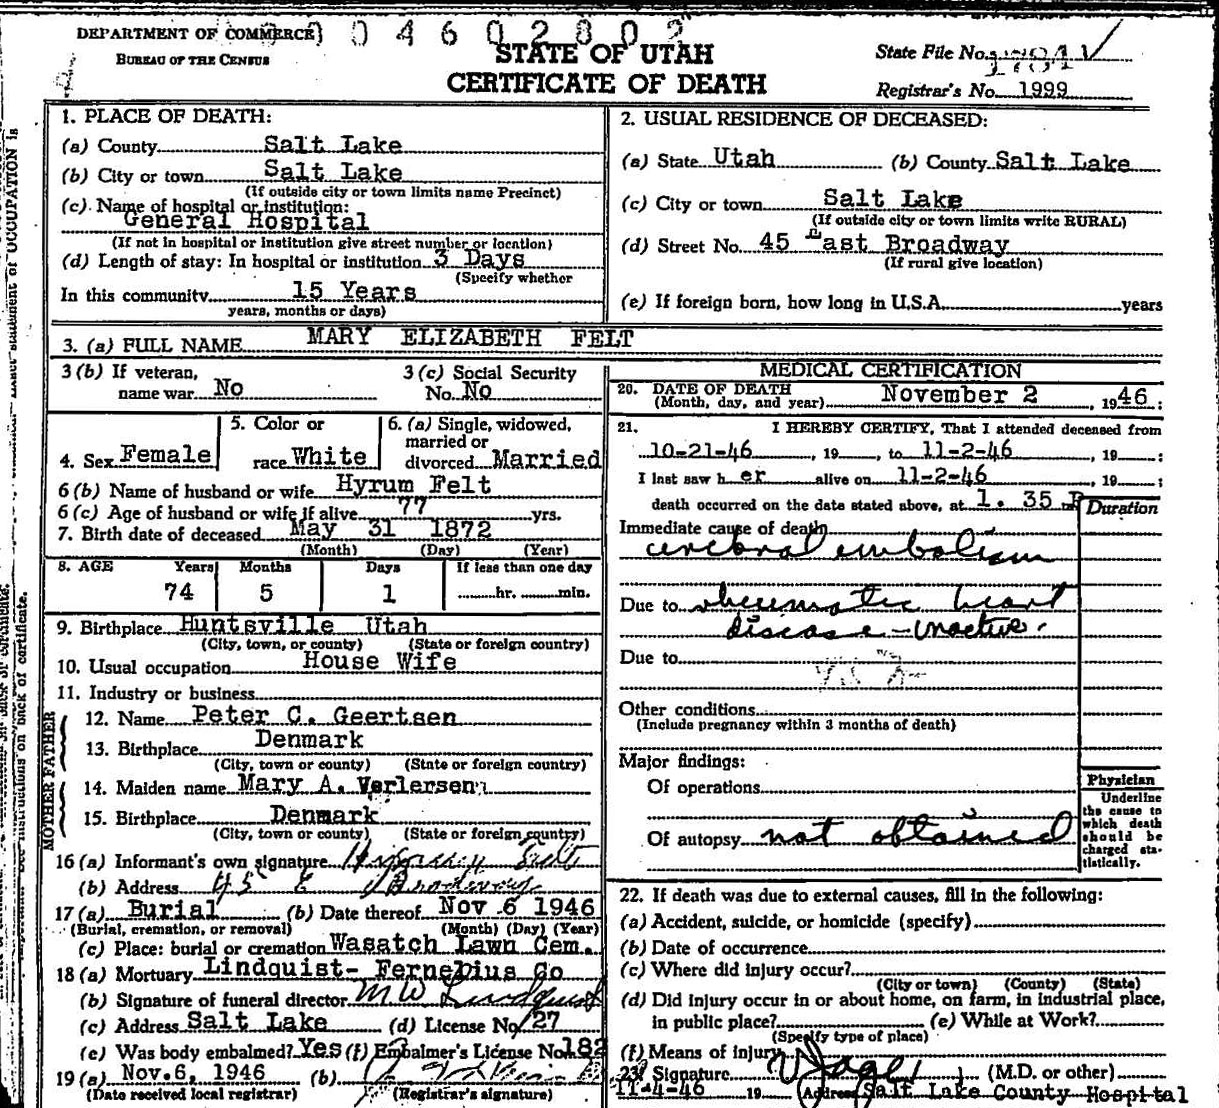 DEPARTMENT OF COMMERCE
BUREAU OF THE CENSUS
04602802
STATE OF UTAH
CERTIFICATE OF DEATH
State File No.
Registrar's No. 1999
1. PLACE OF DEATH:
(a) County Salt Lake
(b) City or town Salt Lake
(If outside city or town limits name Precinct)
(c) Name of hospital or institution:
General Hospital
(If not in hospital or institution give street number or location)
(d) Length of stay: In hospital or institution 3 Days
(Specify whether
In this community 15 Years
years, months or days)
2. USUAL RESIDENCE OF DECEASED:
(a) State Utah (b) County Salt Lake
(c) City or town Salt Lake
(If outside city or town limits write RURAL)
(d) Street No. 45 East Broadway
(If rural give location)
(e) If foreign born, how long in U.S.A. years
3. (a) FULL NAME MARY ELIZABETH FELT
3 (b) If veteran, name war No
3 (c) Social Security No. No
4. Sex Female
5. Color or race White
6. (a) Single, widowed, married or divorced Married
6 (b) Name of husband or wife Hyrum Felt
6 (c) Age of husband or wife if alive 77 yrs.
7. Birth date of deceased May 31 1872
(Month) (Day) (Year)
8. AGE Years Months Days If less than one day
74 5 1 hr. min.
9. Birthplace Huntsville Utah
(City, town, or county) (State or foreign country)
10. Usual occupation House Wife
11. Industry or business
FATHER
12. Name Peter C. Geertsen
13. Birthplace Denmark
(City, town or county) (State or foreign country)
MOTHER
14. Maiden name Mary A. Verlersen
15. Birthplace Denmark
(City, town or county) (State or foreign country)
16 (a) Informant's own signature Felt
(b) Address 45 E Broadway
17 (a) Burial (b) Date thereof Nov 6 1946
(Burial, cremation, or removal) (Month) (Day) (Year)
(c) Place: burial or cremation Wasatch Lawn Cem.
18 (a) Mortuary Lindquist- Fernelius Co
(b) Signature of funeral director M W Lindquist
(c) Address Salt Lake (d) License No. 27
(e) Was body embalmed? Yes (f) Embalmer's License No. 182
19 (a) Nov. 6, 1946 (b)
(Date received local registrar) (Registrar's signature)
MEDICAL CERTIFICATION
20. DATE OF DEATH
(Month, day, and year) November 2, 1946:
21. I HEREBY CERTIFY, That I attended deceased from
10-21-46, 19 , to 11-2-46, 19 ;
I last saw h er alive on 11-2-46, 19 ;
death occurred on the date stated above, at 1. 35 P
Duration
Immediate cause of death
cerebral embolism
Due to rheumatic heart
disease - inactive.
Due to
Other conditions
(Include pregnancy within 3 months of death)
Major findings:
Of operations
Of autopsy not obtained
Physician
Underline the cause to which death should be charged statistically.
22. If death was due to external causes, fill in the following:
(a) Accident, suicide, or homicide (specify)
(b) Date of occurrence
(c) Where did injury occur?
(City or town) (County) (State)
(d) Did injury occur in or about home, on farm, in industrial place,
in public place? (e) While at Work?
(Specify type of place)
(f) Means of injury
23. Signature (M.D. or other)
11-4-46 19 (Address) Salt Lake County Hospital